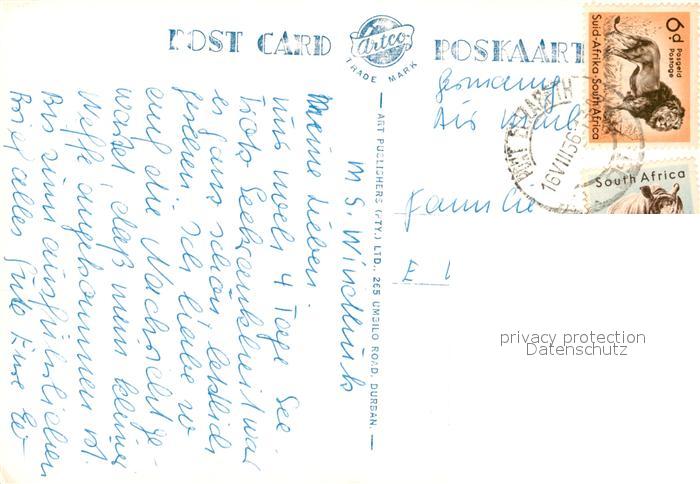 POST CARD
Artco
TRADE MARK
POSKAART
6d
Posgeld
Postage
Suid-Afrika·South Africa
South Africa
16 VIII 56
Germany
Air mail
Familie
E
privacy protection
Datenschutz
ART PUBLISHERS (PTY.) LTD., 265 UMBILO ROAD, DURBAN.
M S. Windhuk
Meine Lieben
nur noch 4 Tage See
Trotz Seekrankheit war
es ganz schön letztlich
gewesen Ich habe so
auf die Nachricht ge-
wartet daß nun kleiner
Neffe angekommen ist.
Bis zum ausführlichen
Brief alles Gute Eure